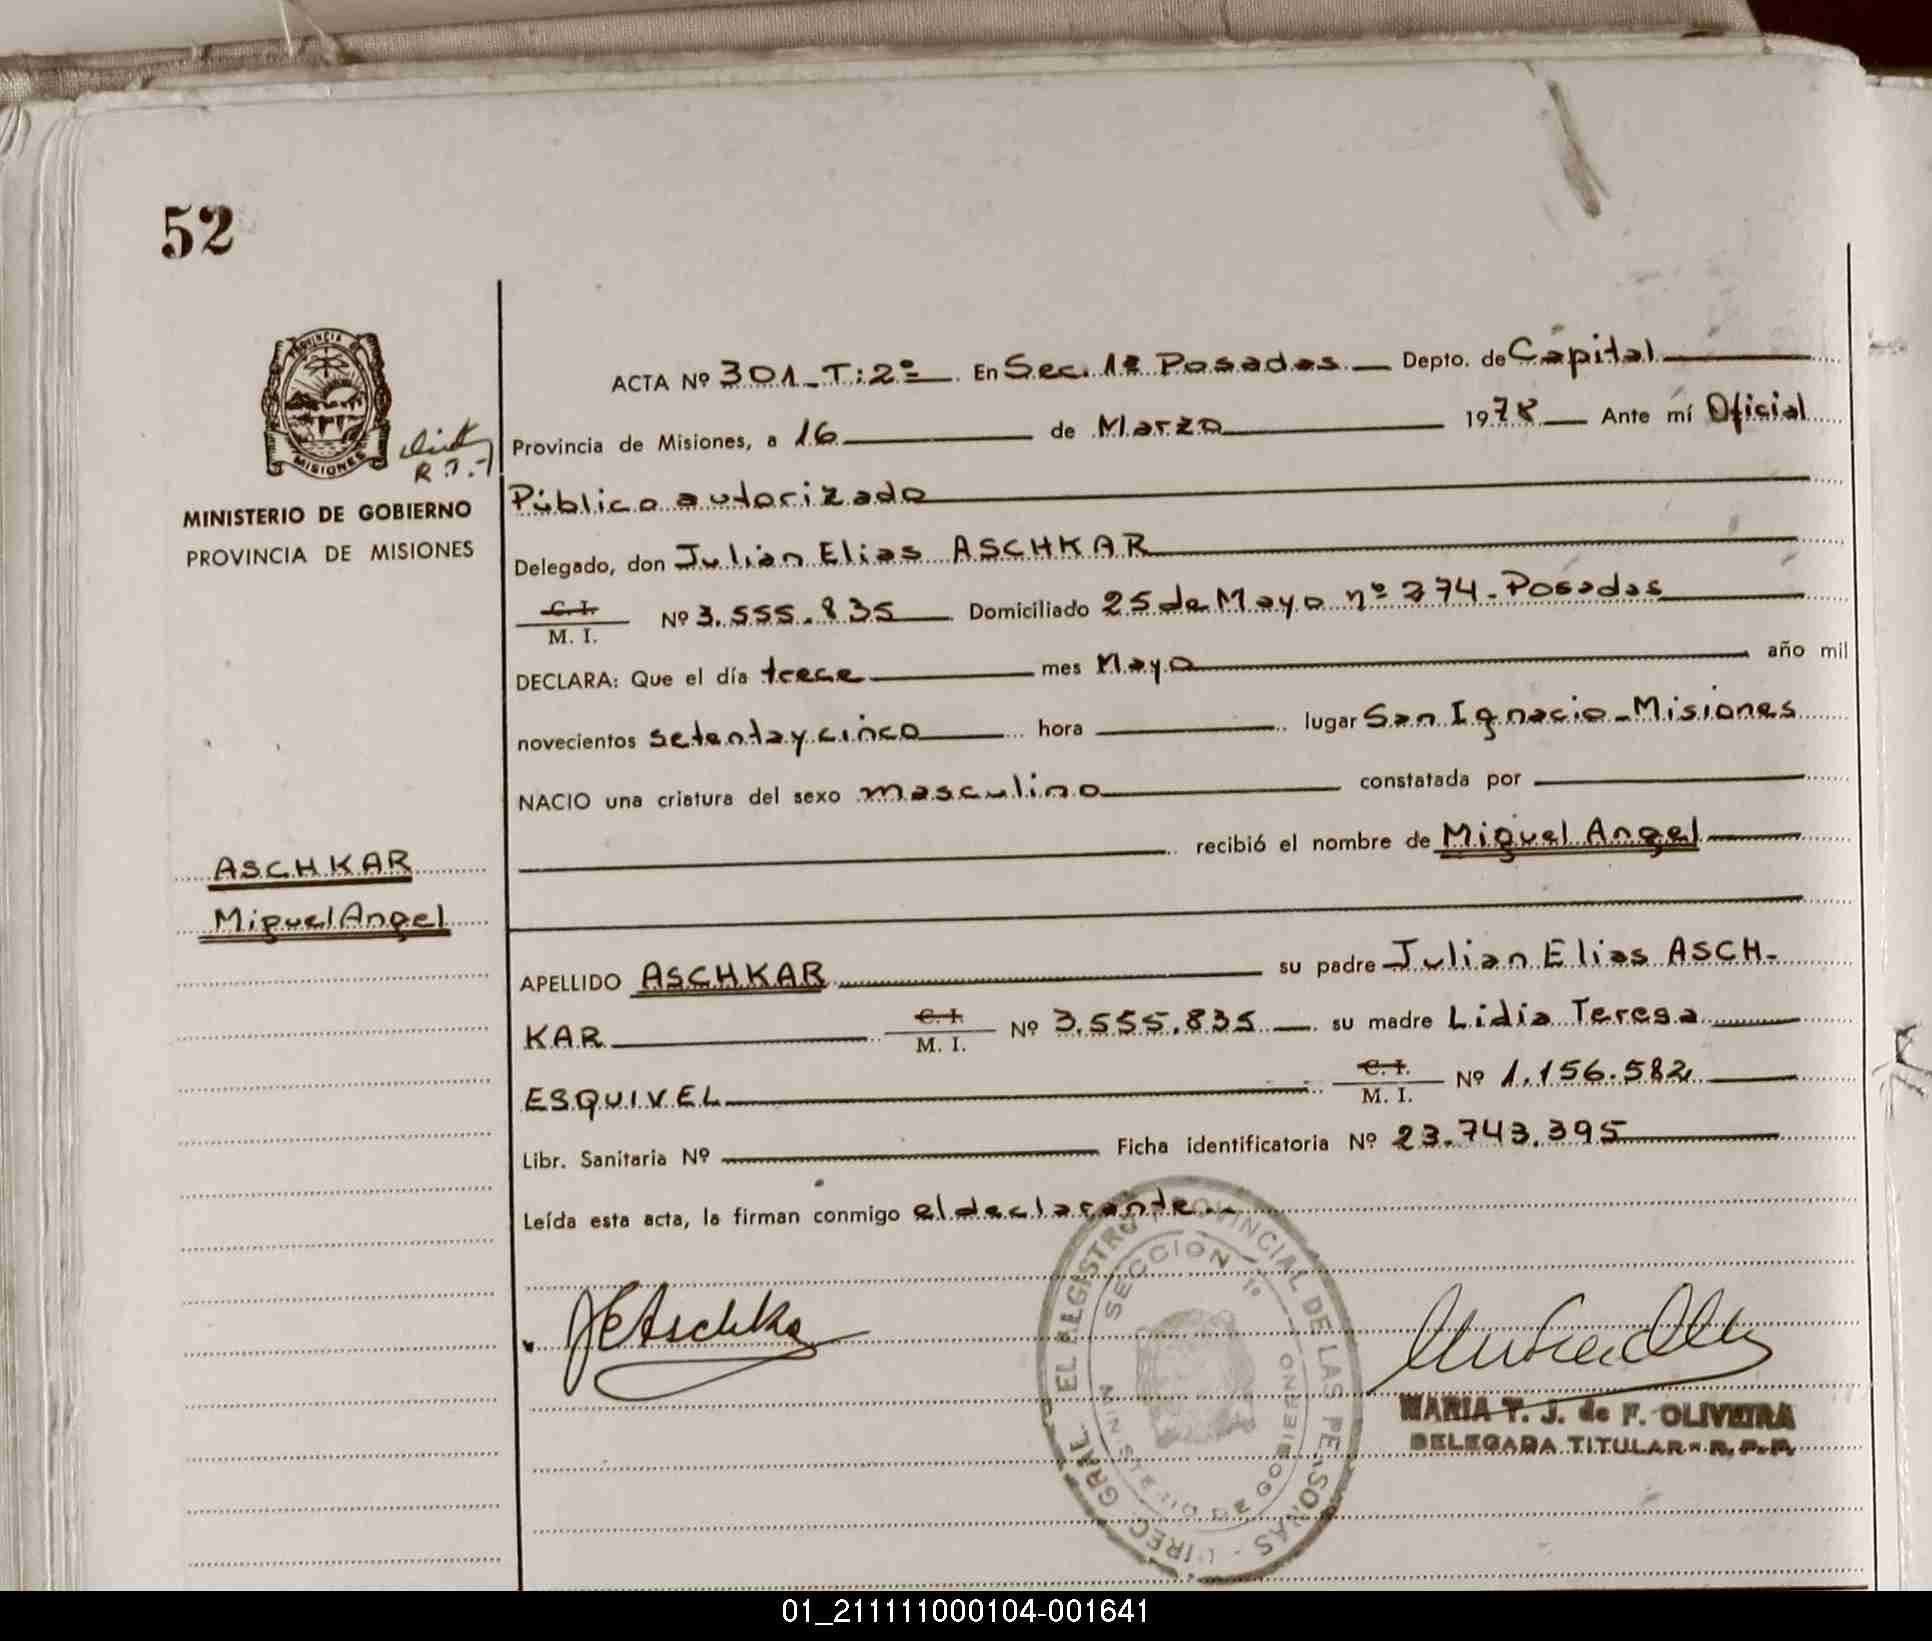 52
PROVINCIA DE
MISIONES
R.P.P.
MINISTERIO DE GOBIERNO
PROVINCIA DE MISIONES
ASCHKAR
Miguel Angel
ACTA Nº 301_T:2º En Sec. 1ª Posadas Depto. de Capital
Provincia de Misiones, a 16 de Marzo 1978 Ante mí Oficial
Público autorizado
Delegado, don Julian Elias ASCHKAR
C. I.
M. I. Nº 3.555.835 Domiciliado 25 de Mayo nº 274-Posadas
DECLARA: Que el día trece mes Mayo año mil
novecientos setenta y cinco hora lugar San Ignacio-Misiones
NACIO una criatura del sexo masculino constatada por
recibió el nombre de Miguel Angel
APELLIDO ASCHKAR su padre Julian Elias ASCH-
KAR C. I. M. I. Nº 3.555.835 su madre Lidia Teresa
ESQUIVEL C. I. M. I. Nº 1.156.582
Libr. Sanitaria Nº Ficha identificatoria Nº 23.743.395
Leída esta acta, la firman conmigo el declarante.
JEAschka
SECCION 1º
MINISTERIO DE GOBIERNO
PROVINCIAL DE LAS PERSONAS - DIREC. GRAL.
MARIA T. J. de F. OLIVEIRA
DELEGADA TITULAR - R. P. P.
01_211111000104-001641